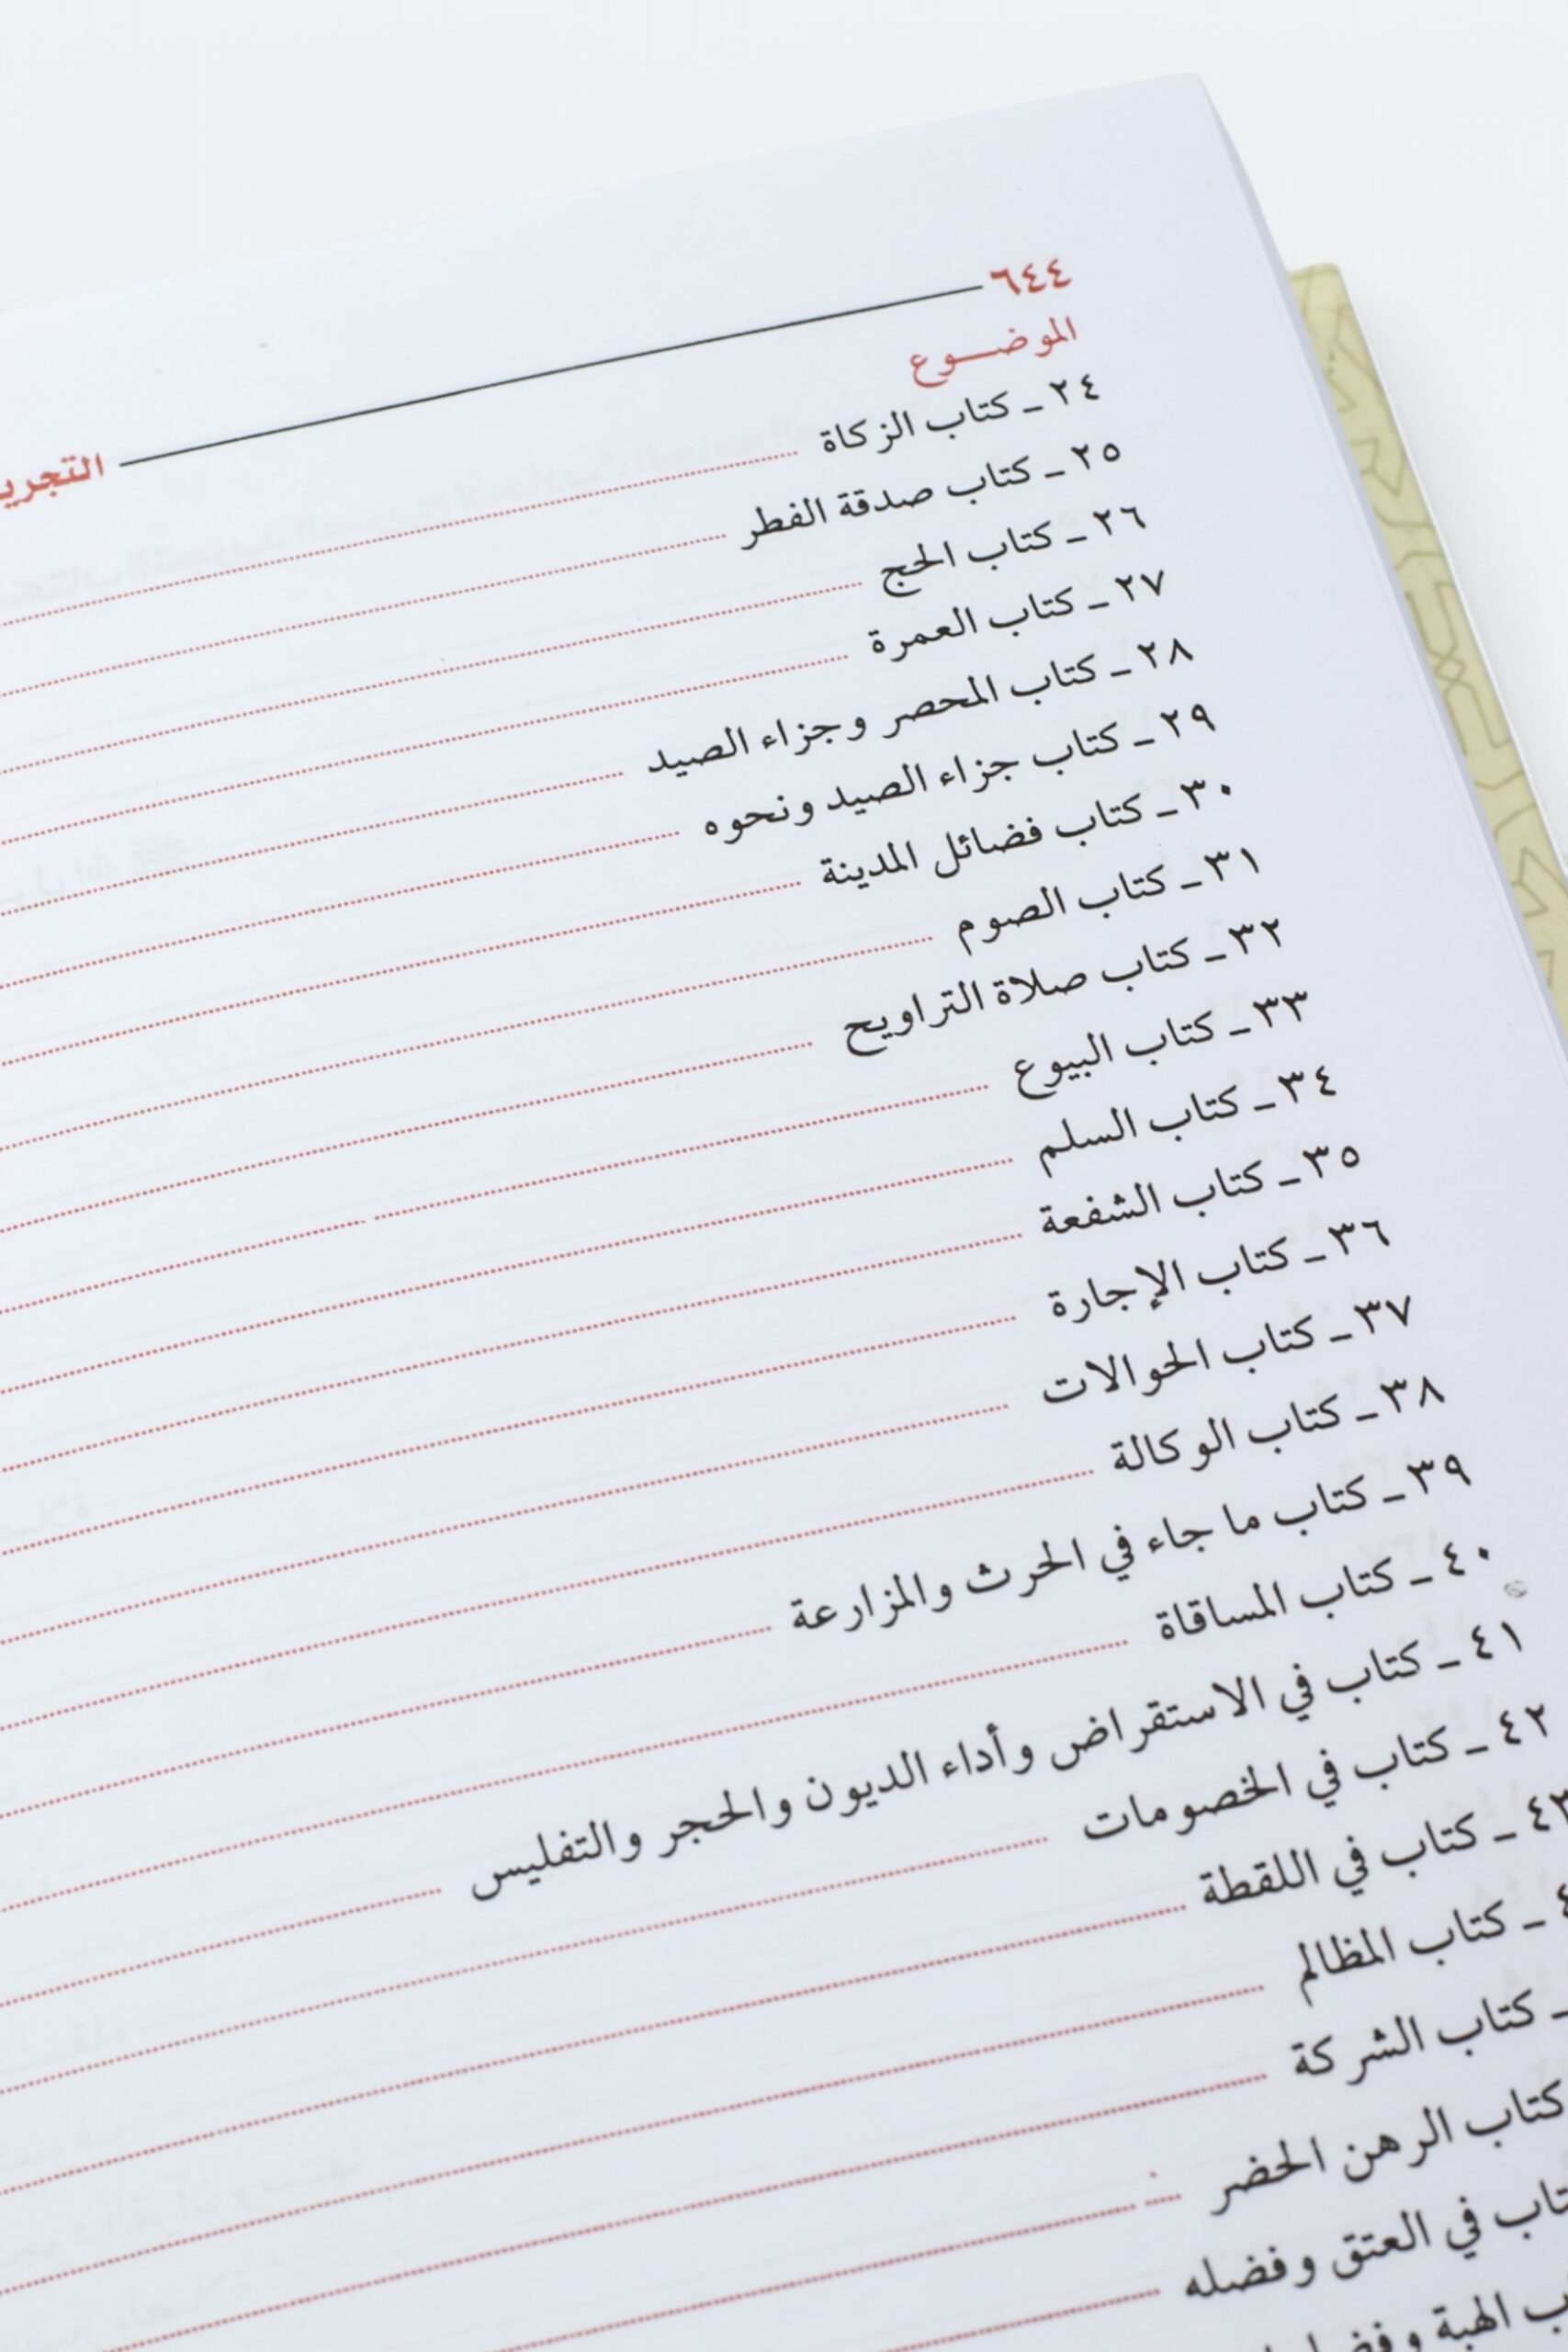 ٦٤٤ التجريـ
الموضـــوع
٢٤ ـ كتاب الزكاة
٢٥ ـ كتاب صدقة الفطر
٢٦ ـ كتاب الحج
٢٧ ـ كتاب العمرة
٢٨ ـ كتاب المحصر وجزاء الصيد
٢٩ ـ كتاب جزاء الصيد ونحوه
٣٠ ـ كتاب فضائل المدينة
٣١ ـ كتاب الصوم
٣٢ ـ كتاب صلاة التراويح
٣٣ ـ كتاب البيوع
٣٤ ـ كتاب السلم
٣٥ ـ كتاب الشفعة
٣٦ ـ كتاب الإجارة
٣٧ ـ كتاب الحوالات
٣٨ ـ كتاب الوكالة
٣٩ ـ كتاب ما جاء في الحرث والمزارعة
٤٠ ـ كتاب المساقاة
٤١ ـ كتاب في الاستقراض وأداء الديون والحجر والتفليس
٤٢ ـ كتاب في الخصومات
٤٣ ـ كتاب في اللقطة
ـ كتاب المظالم
ـ كتاب الشركة
كتاب الرهن الحضر
ـتاب في العتق وفضله
ـب الهبة